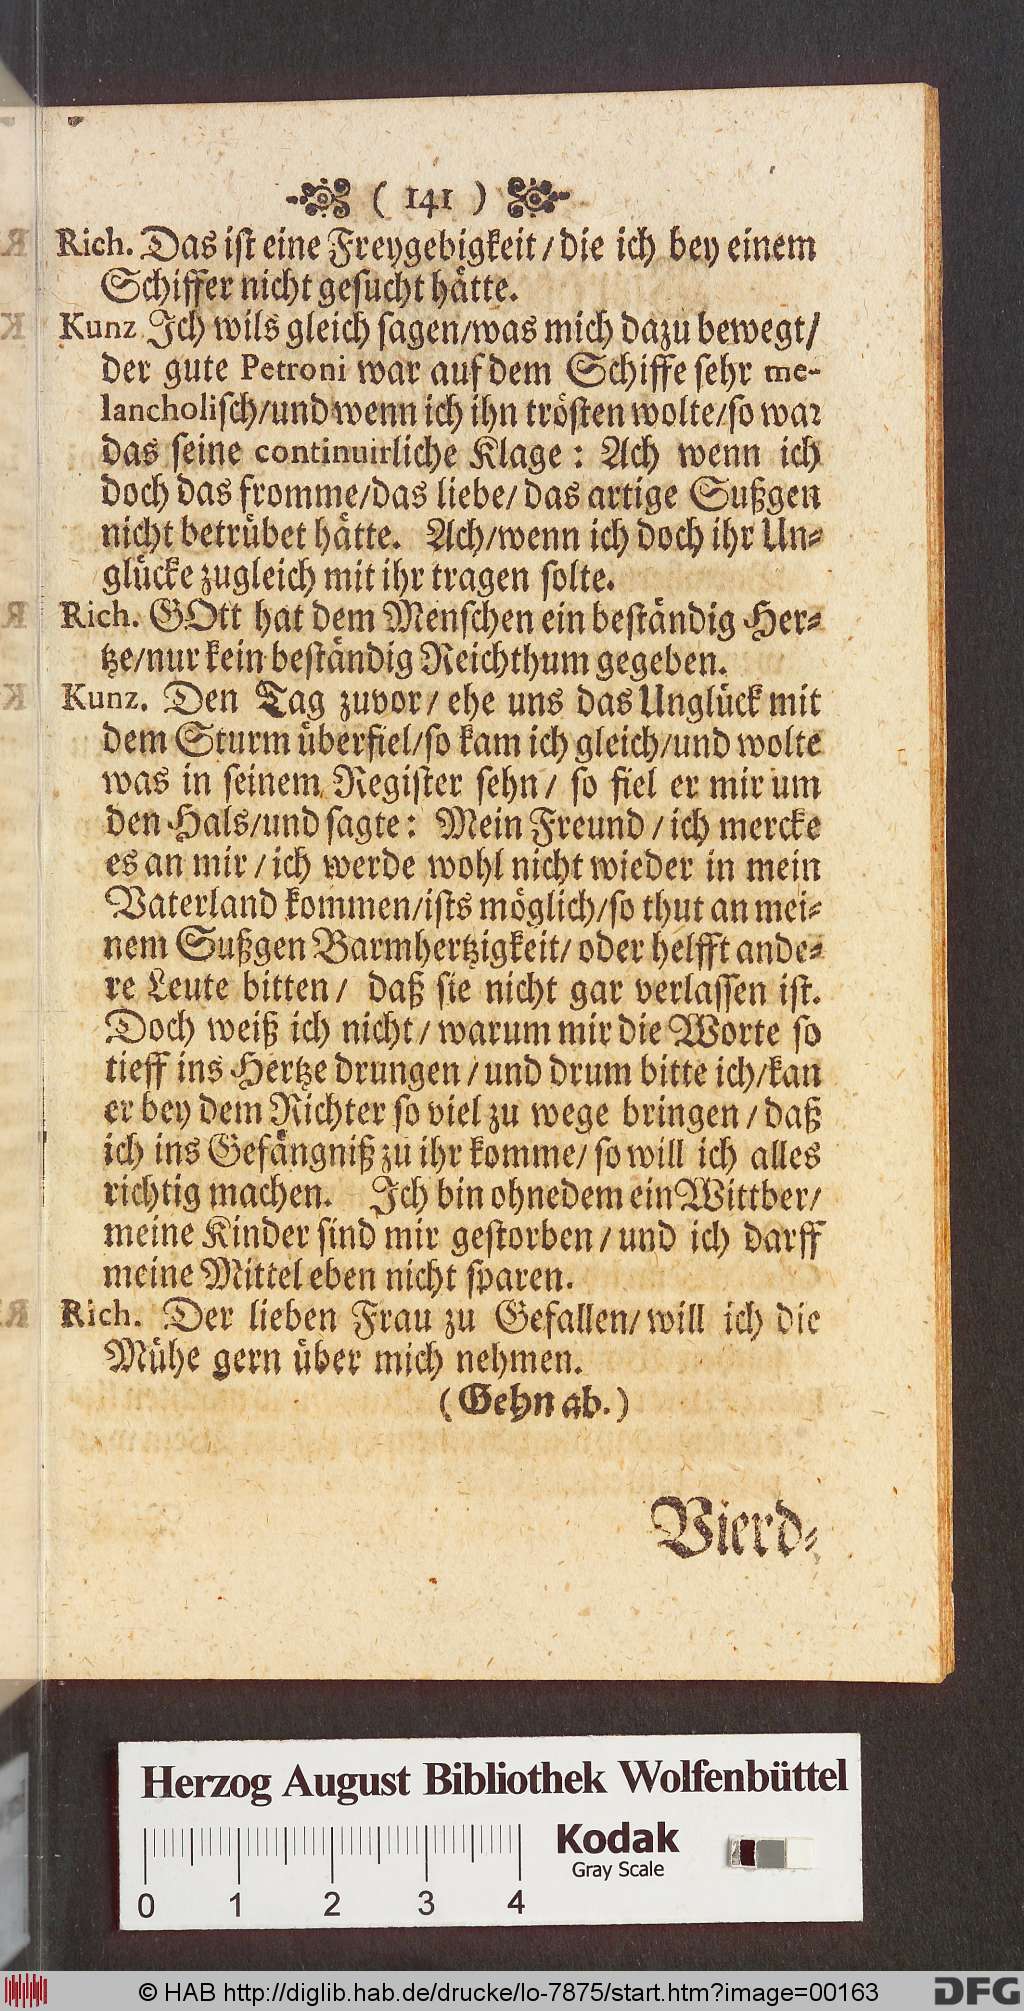 ( 141 )
Rich. Das ist eine Freygebigkeit / die ich bey einem
Schiffer nicht gesucht hätte.
Kunz Ich wils gleich sagen/was mich dazu bewegt/
der gute Petroni war auf dem Schiffe sehr me-
lancholisch/und wenn ich ihn trösten wolte/so war
das seine continuirliche Klage: Ach wenn ich
doch das fromme/das liebe/ das artige Sußgen
nicht betrübet hätte. Ach/wenn ich doch ihr Un-
glücke zugleich mit ihr tragen solte.
Rich. GOtt hat dem Menschen ein beständig Her-
tze/nur kein beständig Reichthum gegeben.
Kunz. Den Tag zuvor/ ehe uns das Unglück mit
dem Sturm überfiel/so kam ich gleich/und wolte
was in seinem Register sehn/ so fiel er mir um
den Hals/und sagte: Mein Freund / ich mercke
es an mir / ich werde wohl nicht wieder in mein
Vaterland kommen/ists möglich/so thut an mei-
nem Sußgen Barmhertzigkeit/ oder helfft ande-
re Leute bitten/ daß sie nicht gar verlassen ist.
Doch weiß ich nicht / warum mir die Worte so
tieff ins Hertze drungen / und drum bitte ich/kan
er bey dem Richter so viel zu wege bringen / daß
ich ins Gefängniß zu ihr komme/ so will ich alles
richtig machen. Ich bin ohnedem ein Wittber/
meine Kinder sind mir gestorben / und ich darff
meine Mittel eben nicht sparen.
Rich. Der lieben Frau zu Gefallen/ will ich die
Mühe gern über mich nehmen.
(Gehn ab.)
Vierd-
Herzog August Bibliothek Wolfenbüttel
Kodak
Gray Scale
0 1 2 3 4
© HAB http://diglib.hab.de/drucke/lo-7875/start.htm?image=00163
DFG